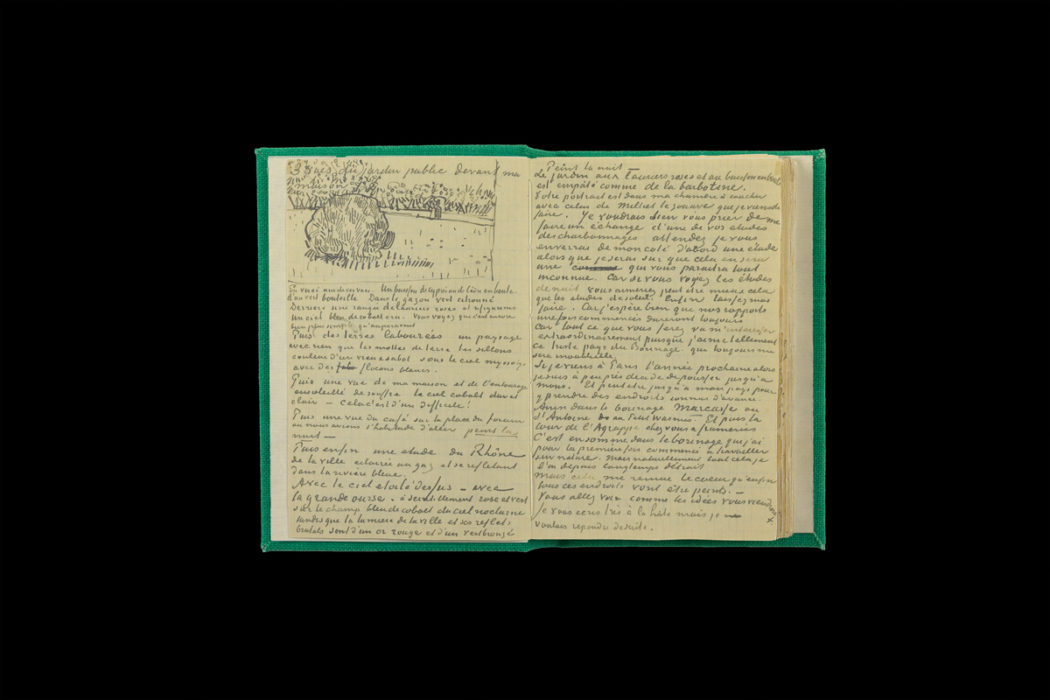 3 vues du jardin public devant ma
maison
En voici une. Un buisson de cyprès
d'un vert bouteille. Dans le gazon vert citronné
Derrière une rangée de lauriers roses et
Un ciel bleu de cobalt cru. Vous voyez que c'est encore
bien plus simple qu'auparavant
Puis des terres labourées un paysage
avec rien que les mottes de terre les sillons
couleur d'un vieux sabot sous le ciel myosotys
avec des flocons blancs.
Puis une vue de ma maison et de l'entourage
ensoleillé de souffre le ciel cobalt dur et
clair – Cela c'est d'un difficile!
Puis une vue du café sur la place du forum
où nous avions l'habitude d'aller peint la
nuit –
Puis enfin une etude du Rhône
de la ville eclairée au gaz et se refletant
dans la rivière bleue.
Avec le ciel etoilé dessus – avec
la grande ourse. à scintillement rose et vert
sur le champ bleu de cobalt du ciel nocturne
tandis que la lumière de la ville et ses reflets
brutals sont d'un or rouge et d'un vert bronzé
Peint la nuit –
Le jardin aux lauriers roses et au buisson en boule
est empâté comme de la barbotine.
Votre portrait est dans ma chambre à coucher
avec celui de Milliet le zouave que je viens de
faire. Je voudrais bien vous prier de me
faire un échange d'une de vos etudes
des charbonnages attendez je vous
enverrai de mon coté d'abord une etude
alors que je serai sur que cela en sera
une qui vous paraitra tout
inconnue. Car si vous voyez les études
de nuit vous aimerez peut etre mieux cela
que les etudes de soleil. Enfin laissez moi
faire. Car j'espère bien que nos rapports
une fois commencés dureront toujours
Car tout ce que vous ferez va m'interesser
extraordinairement puisque j'aime tellement
ce triste pays du Borinage qui toujours me
sera inoubliable.
Si je viens à Paris l'année prochaine alors
je suis à peu près décidé de pousser jusqu'à
Mons. Et peut etre jusqu'à mon pays pour
y prendre des endroits connus d'avance.
Ainsi dans le borinage Marcasse ou
St Antoine au Petit Wasmes. Et puis la
cour de l'Agrappe chez vous à frameries
C'est en somme dans le borinage que j'ai
pour la première fois commencé à travailler
sur nature. Mais naturellement tout cela je
l'ai depuis longtemps détruit
Mais cela me remue le coeur qu'enfin
tous ces endroits vont être peints. –
Vous allez voir comme les idées vous viendront
je vous ecris très à la hâte mais je
voulais repondre de suite.